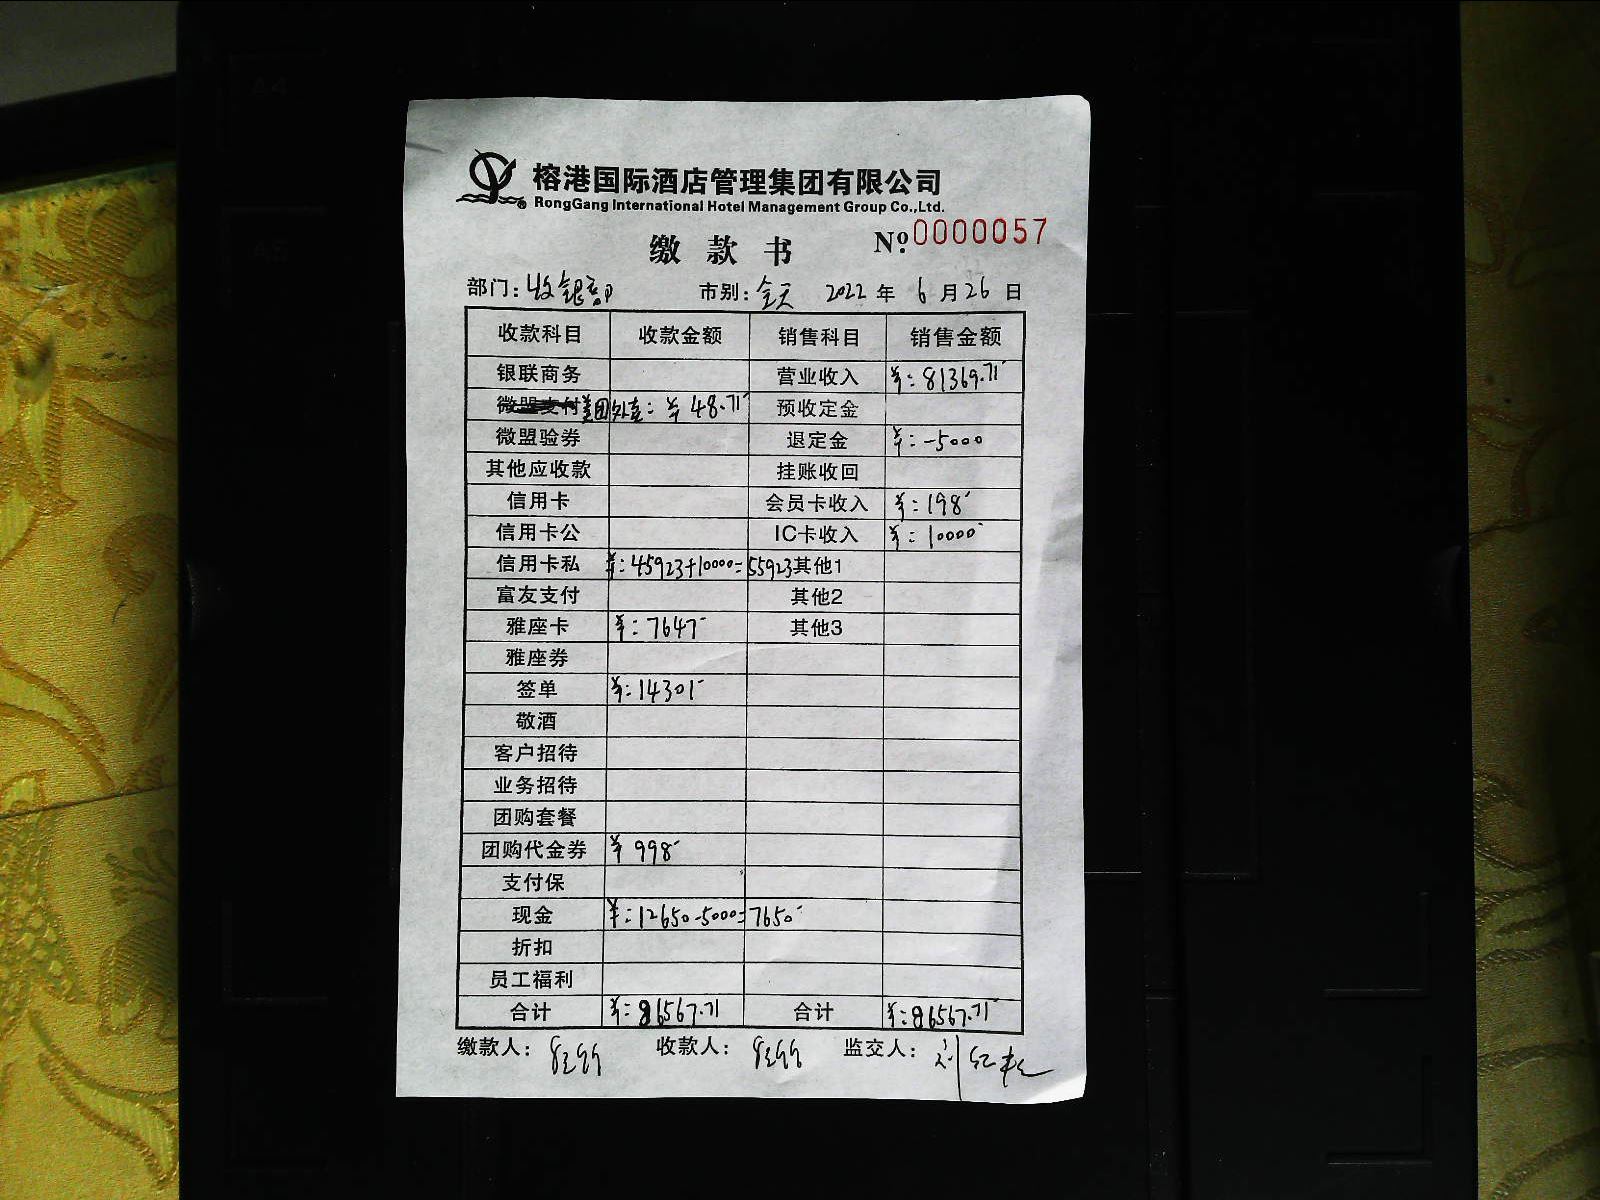 榕港国际酒店管理集团有限公司
RongGang International Hotel Management Group Co.,Ltd.
缴款书 No. 0000057
部门: 收银部 市别: 全天 2022 年 6 月 26 日
收款科目 收款金额 销售科目 销售金额
银联商务 营业收入 ¥: 81369.71
微盟支付 美团外卖: ¥ 48.71 预收定金
微盟验券 退定金 ¥: -5000
其他应收款 挂账收回
信用卡 会员卡收入 ¥: 198
信用卡公 IC卡收入 ¥: 10000
信用卡私 ¥: 45923+10000=55923 其他1
富友支付 其他2
雅座卡 ¥: 7647 其他3
雅座券
签单 ¥: 14301
敬酒
客户招待
业务招待
团购套餐
团购代金券 ¥ 998
支付保
现金 ¥: 12650-5000=7650
折扣
员工福利
合计 ¥: 86567.71 合计 ¥: 86567.71
缴款人: 收款人: 监交人: 刘红